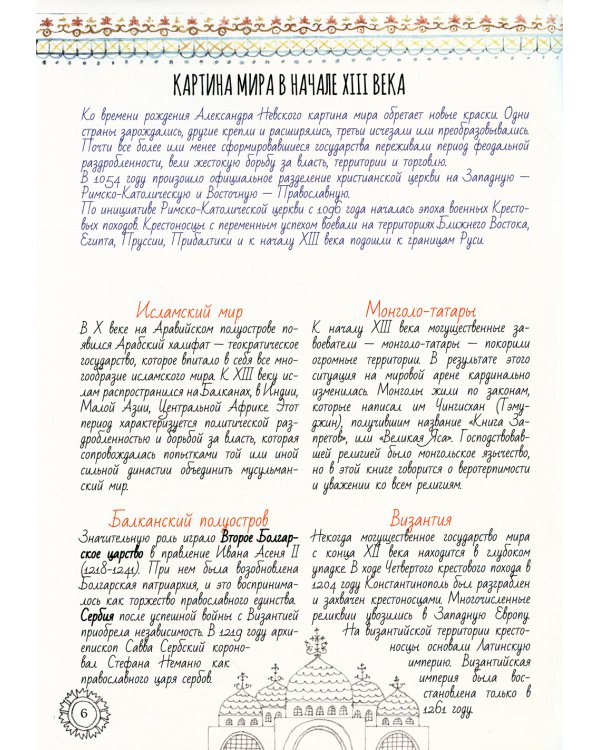 КАРТИНА МИРА В НАЧАЛЕ XIII ВЕКА
Ко времени рождения Александра Невского картина мира обретает новые краски. Одни
страны зарождались, другие крепли и расширялись, третьи исчезали или преобразовывались.
Почти все более или менее сформировавшиеся государства переживали период феодальной
раздробленности, вели жестокую борьбу за власть, территории и торговлю.
В 1054 году произошло официальное разделение христианской церкви на Западную —
Римско-Католическую и Восточную — Православную.
По инициативе Римско-Католической церкви с 1096 года началась эпоха военных Кресто-
вых походов. Крестоносцы с переменным успехом воевали на территориях Ближнего Востока,
Египта, Пруссии, Прибалтики и к началу XIII века подошли к границам Руси.
Исламский мир
В X веке на Аравийском полуострове по-
явился Арабский халифат — теократическое
государство, которое впитало в себя все мно-
гообразие исламского мира. К XIII веку ис-
лам распространился на Балканах, в Индии,
Малой Азии, Центральной Африке. Этот
период характеризуется политической раз-
дробленностью и борьбой за власть, которая
сопровождалась попытками той или иной
сильной династии объединить мусульман-
ский мир.
Монголо-татары
К началу XIII века могущественные за-
воеватели — монголо-татары — покорили
огромные территории. В результате этого
ситуация на мировой арене кардинально
изменилась. Монголы жили по законам,
которые написал им Чингисхан (Тэму-
джин), получившим название «Книга За-
претов», или «Великая Яса». Господствовав-
шей религией было монгольское язычество,
но в этой книге говорится о веротерпимости
и уважении ко всем религиям.
Балканский полуостров
Значительную роль играло Второе Болгар-
ское царство в правление Ивана Асеня II
(1218-1241). При нем была возобновлена
Болгарская патриархия, и это воспринима-
лось как торжество православного единства.
Сербия после успешной войны с Византией
приобрела независимость. В 1219 году архи-
епископ Савва Сербский короно-
вал Стефана Неманю как
православного царя сербов.
Византия
Некогда могущественное государство мира
с конца XII века находится в глубоком
упадке. В ходе Четвертого крестового похода в
1204 году Константинополь был разграблен
и захвачен крестоносцами. Многочисленные
реликвии увозились в Западную Европу.
На византийской территории кресто-
носцы основали Латинскую
империю. Византийская
империя была вос-
становлена только в
1261 году.
6